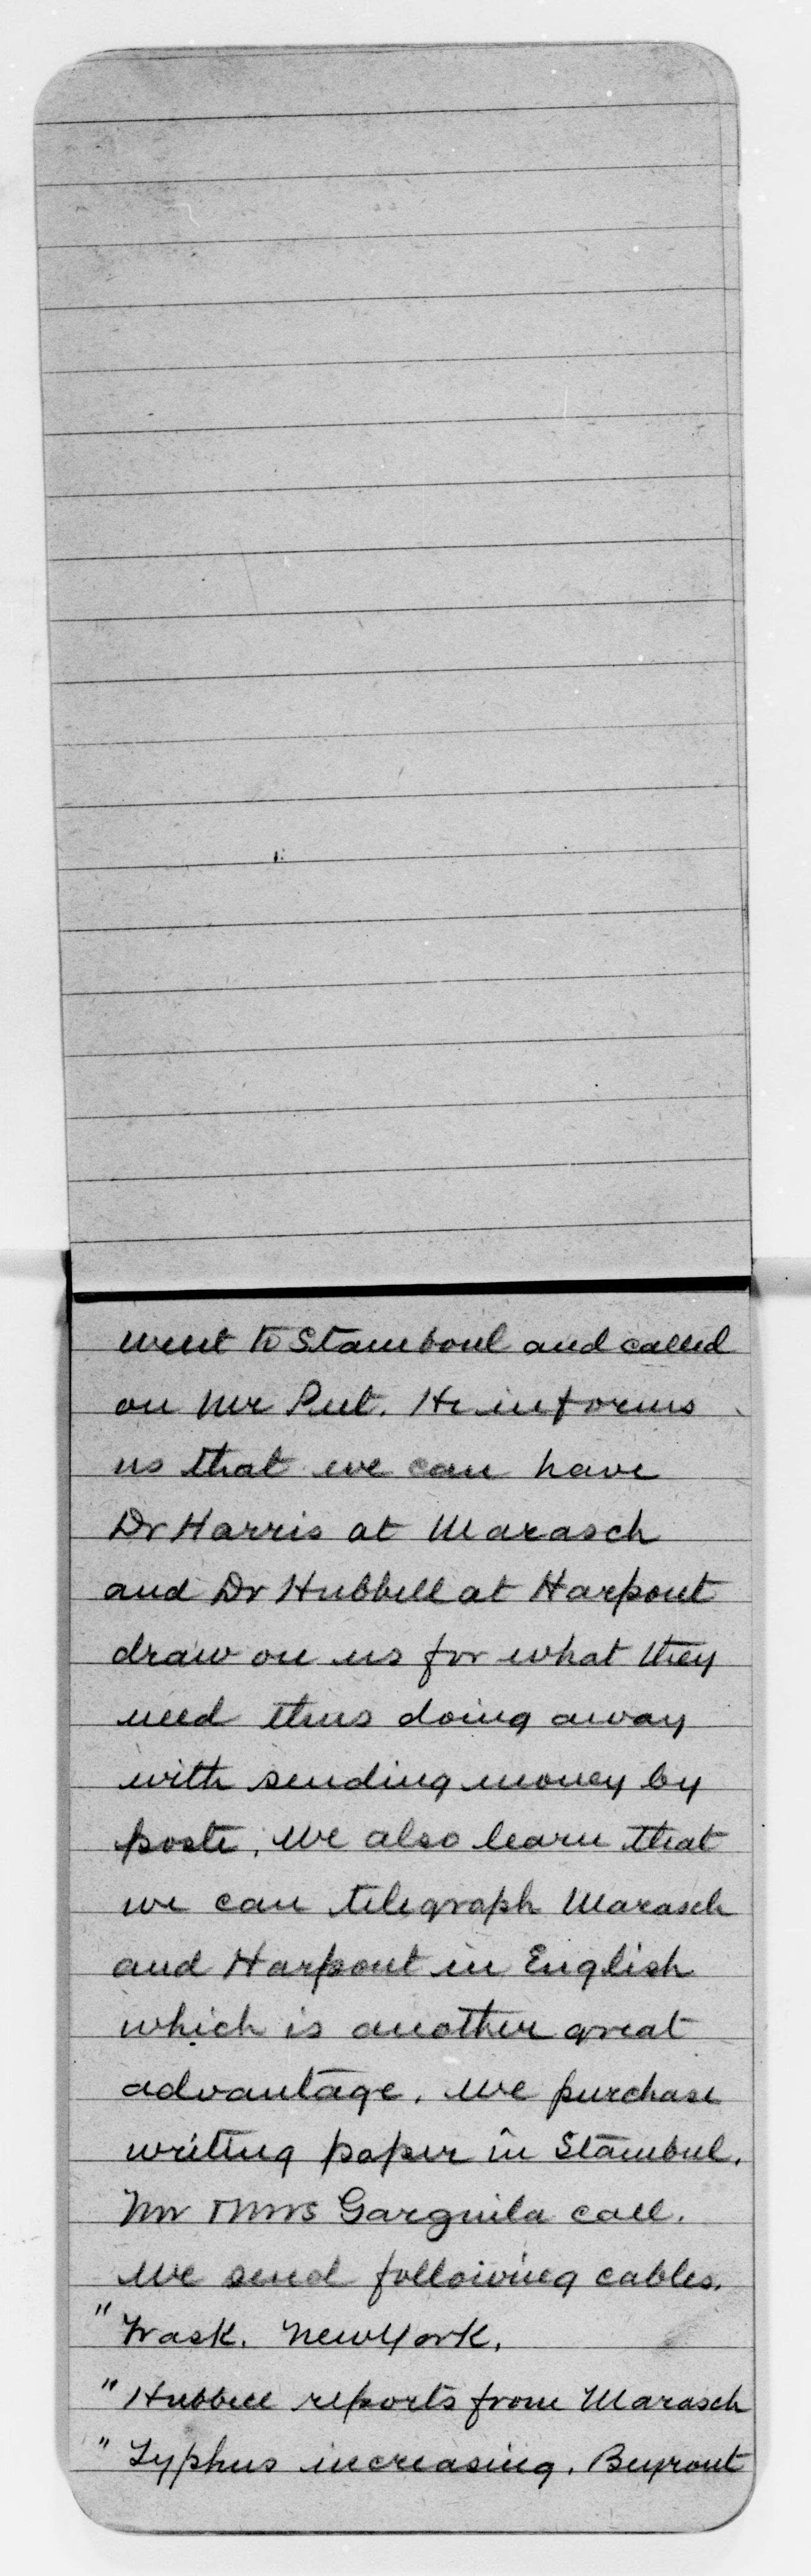 went to Stamboul and called
on Mr Peet. He informs
us that we can have
Dr Harris at Marasch
and Dr Hubbell at Harpout
draw on us for what they
need thus doing away
with sending money by
poste, We also learn that
we can telegraph Marasch
and Harpout in English
which is another great
advantage. We purchase
writing paper in Stambul.
Mr & Mrs Garguila call.
We send following cables.
"Trask. New York.
"Hubbell reports from Marasch
"Typhus increasing. Beyrout